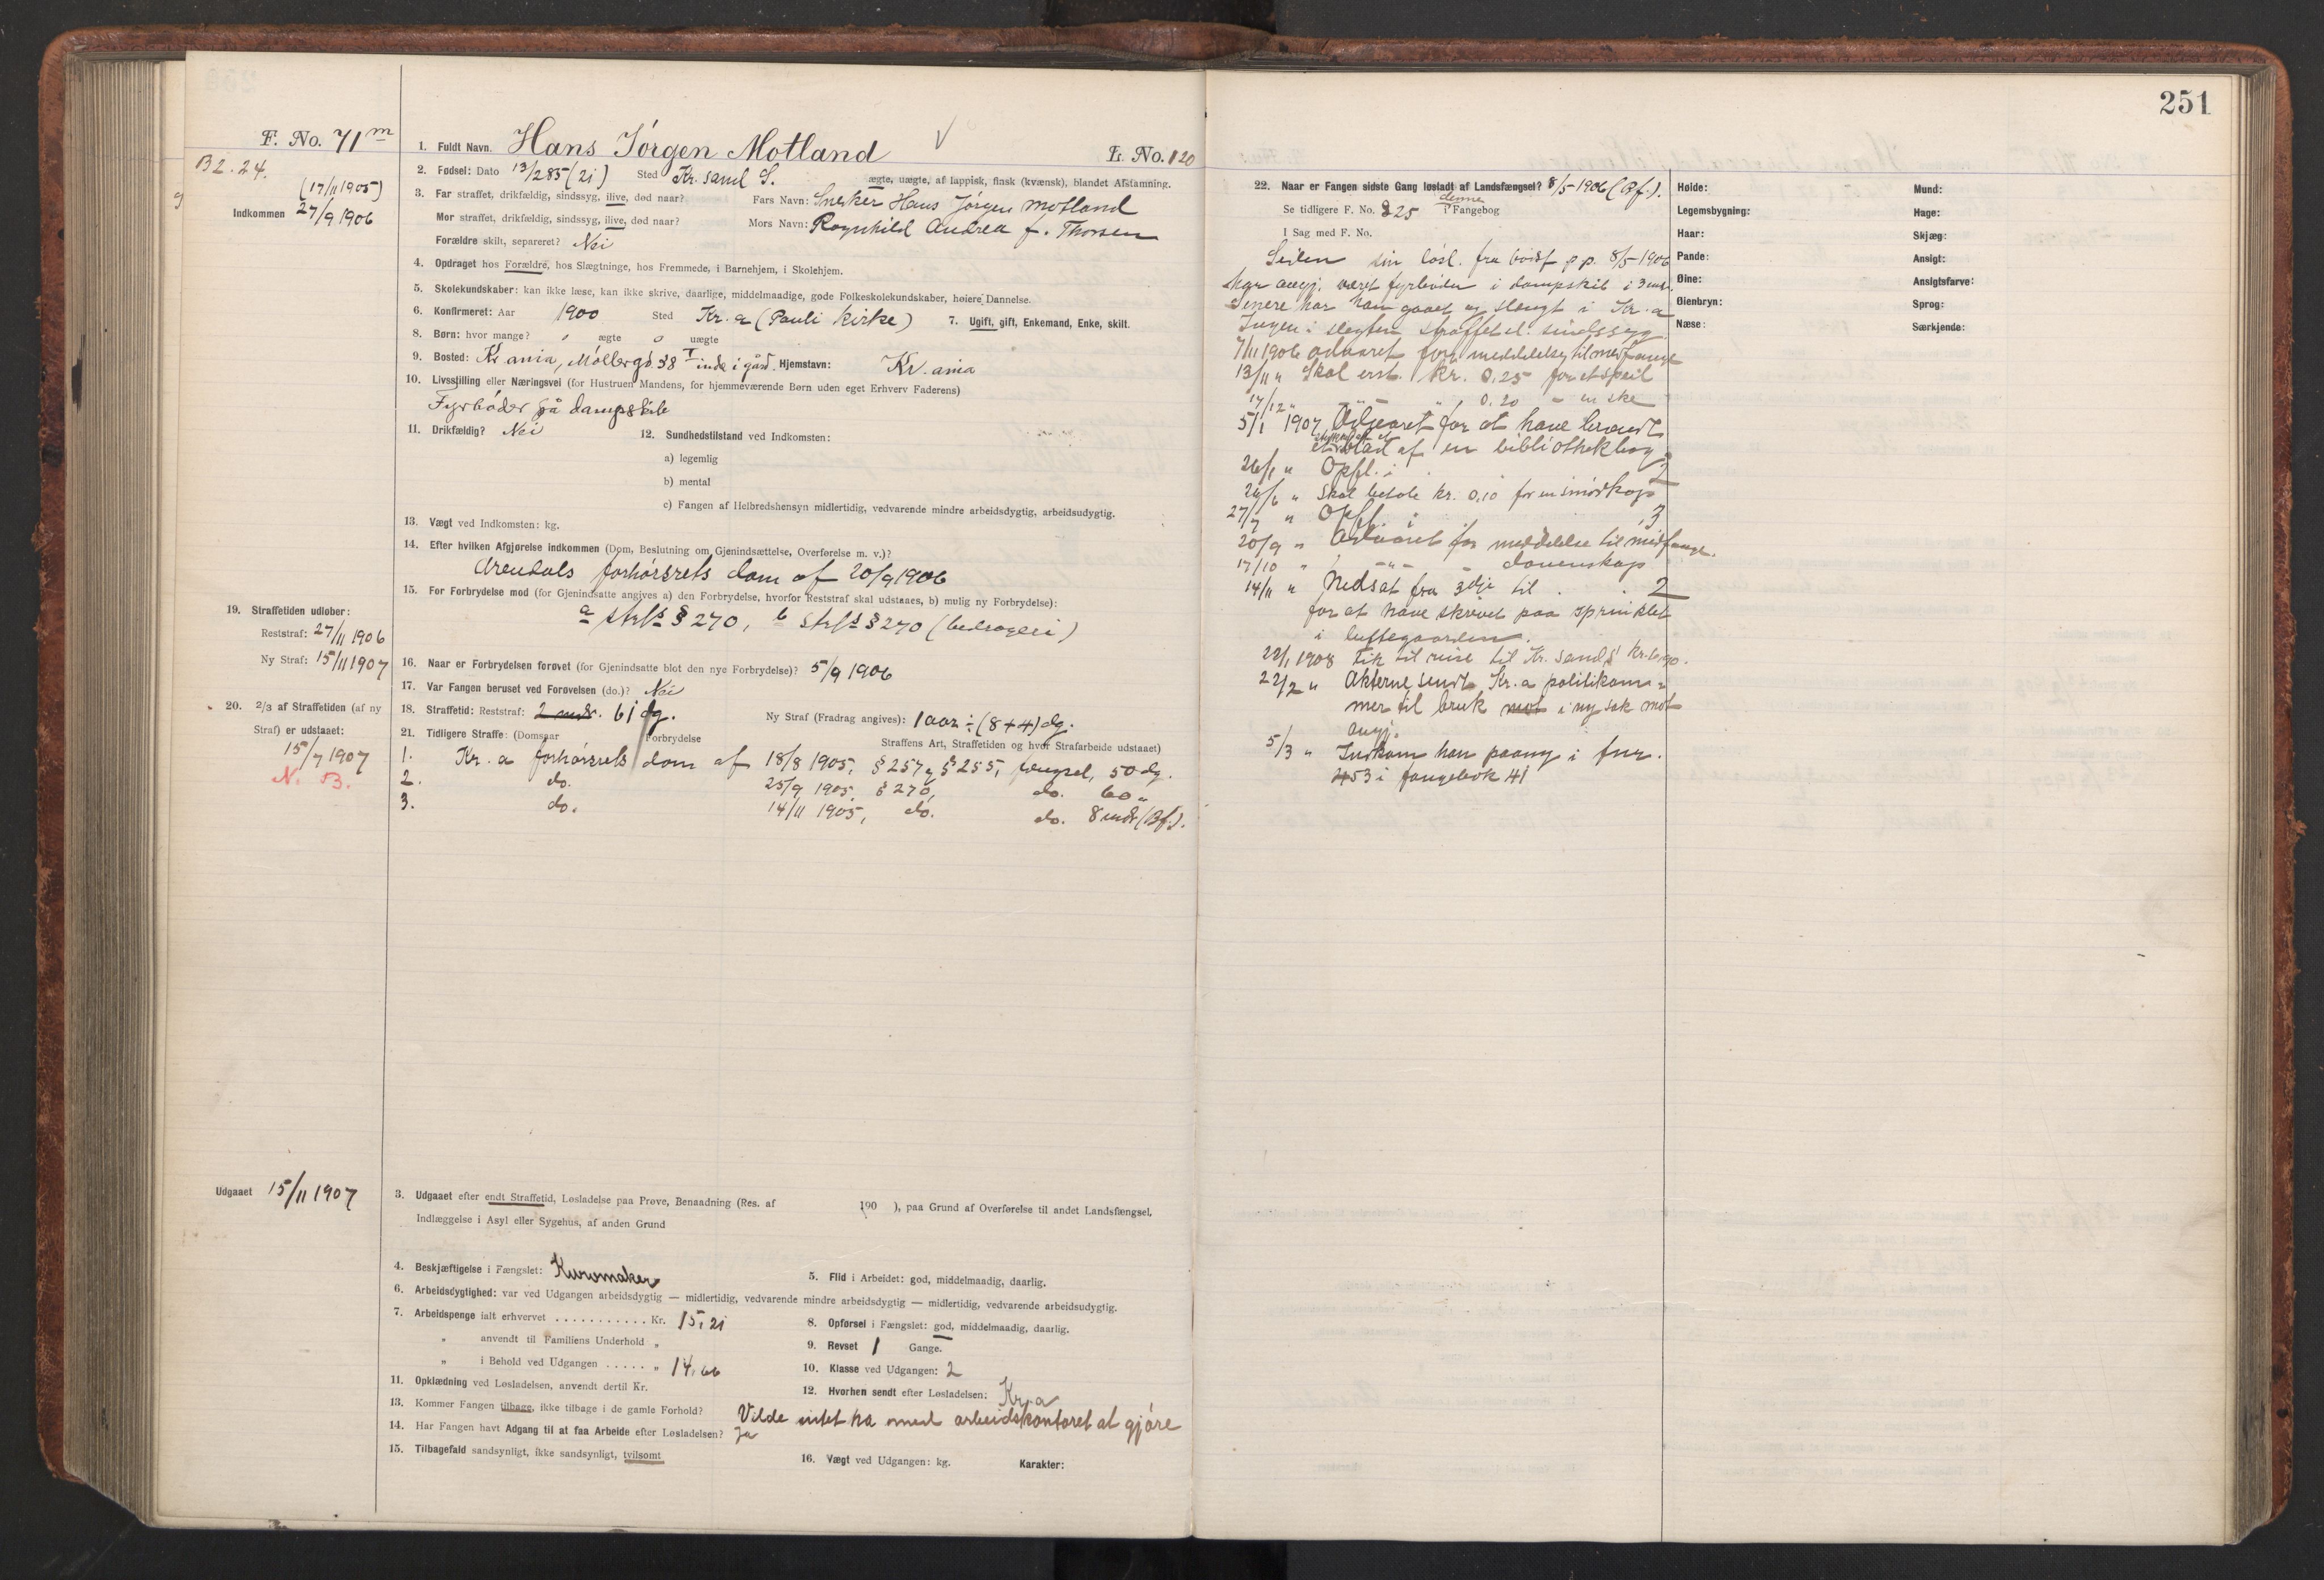 251
F. No. 71 m
B 2. 24.
(17/11 1905)
Indkommen 27/9 1906
1. Fuldt Navn. Hans Jörgen Motland
L. No. 120
2. Fødsel: Dato 13/2 85 (21) Sted Kr. sand S. ægte, uægte, af lappisk, finsk (kvænsk), blandet Afstamning.
3. Far straffet, drikfældig, sindssyg, ilive, død naar? Fars Navn: Snekker Hans Jörgen Motland
Mor straffet, drikfældig, sindssyg, ilive, død naar? Mors Navn: Ragnhild Andrea f. Thorsen
Forældre skilt, separeret? Nei
4. Opdraget hos Forældre, hos Slægtninge, hos Fremmede, i Barnehjem, i Skolehjem.
5. Skolekundskaber: kan ikke læse, kan ikke skrive, daarlige, middelmaadige, gode Folkeskolekundskaber, høiere Dannelse.
6. Konfirmeret: Aar 1900 Sted Kr. a (Pauli Kirke) 7. Ugift, gift, Enkemand, Enke, skilt.
8. Børn: hvor mange? o ægte o uægte
9. Bosted: Kr. ania, Möllergd. 38 I inde i gård. Hjemstavn: Kr. ania
10. Livsstilling eller Næringsvei (for Hustruer Mandens, for hjemmeværende Børn uden eget Erhverv Faderens)
Fyrböder på dampskibe
11. Drikfældig? Nei 12. Sundhedstilstand ved Indkomsten:
a) legemlig
b) mental
c) Fangen af Helbredshensyn midlertidig, vedvarende mindre arbeidsdygtig, arbeidsudygtig.
13. Vægt ved Indkomsten: kg.
14. Efter hvilken Afgjørelse indkommen (Dom, Beslutning om Gjenindsættelse, Overførelse m. v.)?
Arendals forhörsrets dom af 20/9 1906
15. For Forbrydelse mod (for Gjenindsatte angives a) den Forbrydelse, hvorfor Reststraf skal udstaaes, b) mulig ny Forbrydelse):
a strfl § 270, b strfl § 270 (bedrageri)
19. Straffetiden udløber:
Reststraf: 27/11 1906
Ny Straf: 15/11 1907
16. Naar er Forbrydelsen forøvet (for Gjenindsatte blot den nye Forbrydelse)? 5/9 1906
17. Var Fangen beruset ved Forøvelsen (do.)? Nei
18. Straffetid: Reststraf: 2 mdr. 61 dg. Ny Straf (Fradrag angives): 1 aar ÷ (8+4) dg.
20. 2/3 af Straffetiden (af ny
Straf) er udstaaet:
15/7 1907
N. B.
21. Tidligere Straffe: (Domsaar Forbrydelse Straffens Art, Straffetiden og hvor Strafarbeide udstaaet)
1. Kr. a forhörsrets dom af 18/8 1905, § 257 og § 255, fængsel, 50 dg.
2. do. 25/9 1905, § 270, do. 60 "
3. do. 14/11 1905, do. do. 8 mdr (Bf.).
Udgaaet 15/11 1907
3. Udgaaet efter endt Straffetid, Løsladelse paa Prøve, Benaadning (Res. af 190 ), paa Grund af Overførelse til andet Landsfængsel,
Indlæggelse i Asyl eller Sygehus, af anden Grund
4. Beskjæftigelse i Fængslet: Kurvmaker 5. Flid i Arbeidet: god, middelmaadig, daarlig.
6. Arbeidsdygtighed: var ved Udgangen arbeidsdygtig — midlertidig, vedvarende mindre arbeidsdygtig — midlertidig, vedvarende arbeidsudygtig.
7. Arbeidspenge ialt erhvervet ........... Kr. 15,21 8. Opførsel i Fængslet: god, middelmaadig, daarlig.
" anvendt til Familiens Underhold " 9. Revset 1 Gange.
" i Behold ved Udgangen ..... " 14,66 10. Klasse ved Udgangen: 2
11. Opklædning ved Løsladelsen, anvendt dertil Kr. 12. Hvorhen sendt efter Løsladelsen: Kr. a
13. Kommer Fangen tilbage, ikke tilbage i de gamle Forhold? Vilde intet ha med arbeidskontoret at gjöre
14. Har Fangen havt Adgang til at faa Arbeide efter Løsladelsen? Ja
15. Tilbagefald sandsynligt, ikke sandsynligt, tvilsomt 16. Vægt ved Udgangen: kg. Karakter:
22. Naar er Fangen sidste Gang løsladt af Landsfængsel? 8/5 1906 (Bf.).
Se tidligere F. No. 225 i denne Fangebog
I Sag med F. No.
Siden sin lösl. fra bodsf p.p. 8/5 1906
angj. været fyrböder i dampskib i 3 mdr.
Senere har han gaaet og slængt i Kr. a
Ingen i slegten straffet el. sindssyg
7/11 1906 advaret for meddelelse til medfange
13/11 " Skal erst. Kr. 0.25 for et speil
17/12 " " 0.20 " en ske
5/1 1907 Advaret for at have brændt
et blad af en bibliothekbog
26/1 " Opfl. i 2
26/6 " Skal betale kr. 0,10 for en smörkop
27/7 " Opfl. i 3
20/9 " Advaret for meddelelse til medfange.
17/10 " " " " dovenskap
14/11 " Nedsat fra 3dje til . . 2
for at have skrevet paa sprinklet
i luftegaarden.
22/1 1908 Fik til reise til Kr. sand S.
22/2 " Akterne sendt Kr. a politikam-
mer til bruk mot i ny sak mot
angj.
5/3 " Indkom han paany i fnr.
453 i fangebok 41
Høide:
Legemsbygning:
Haar:
Pande:
Øine:
Øienbryn:
Næse:
Mund:
Hage:
Skjæg:
Ansigt:
Ansigtsfarve:
Sprog:
Særkjende: